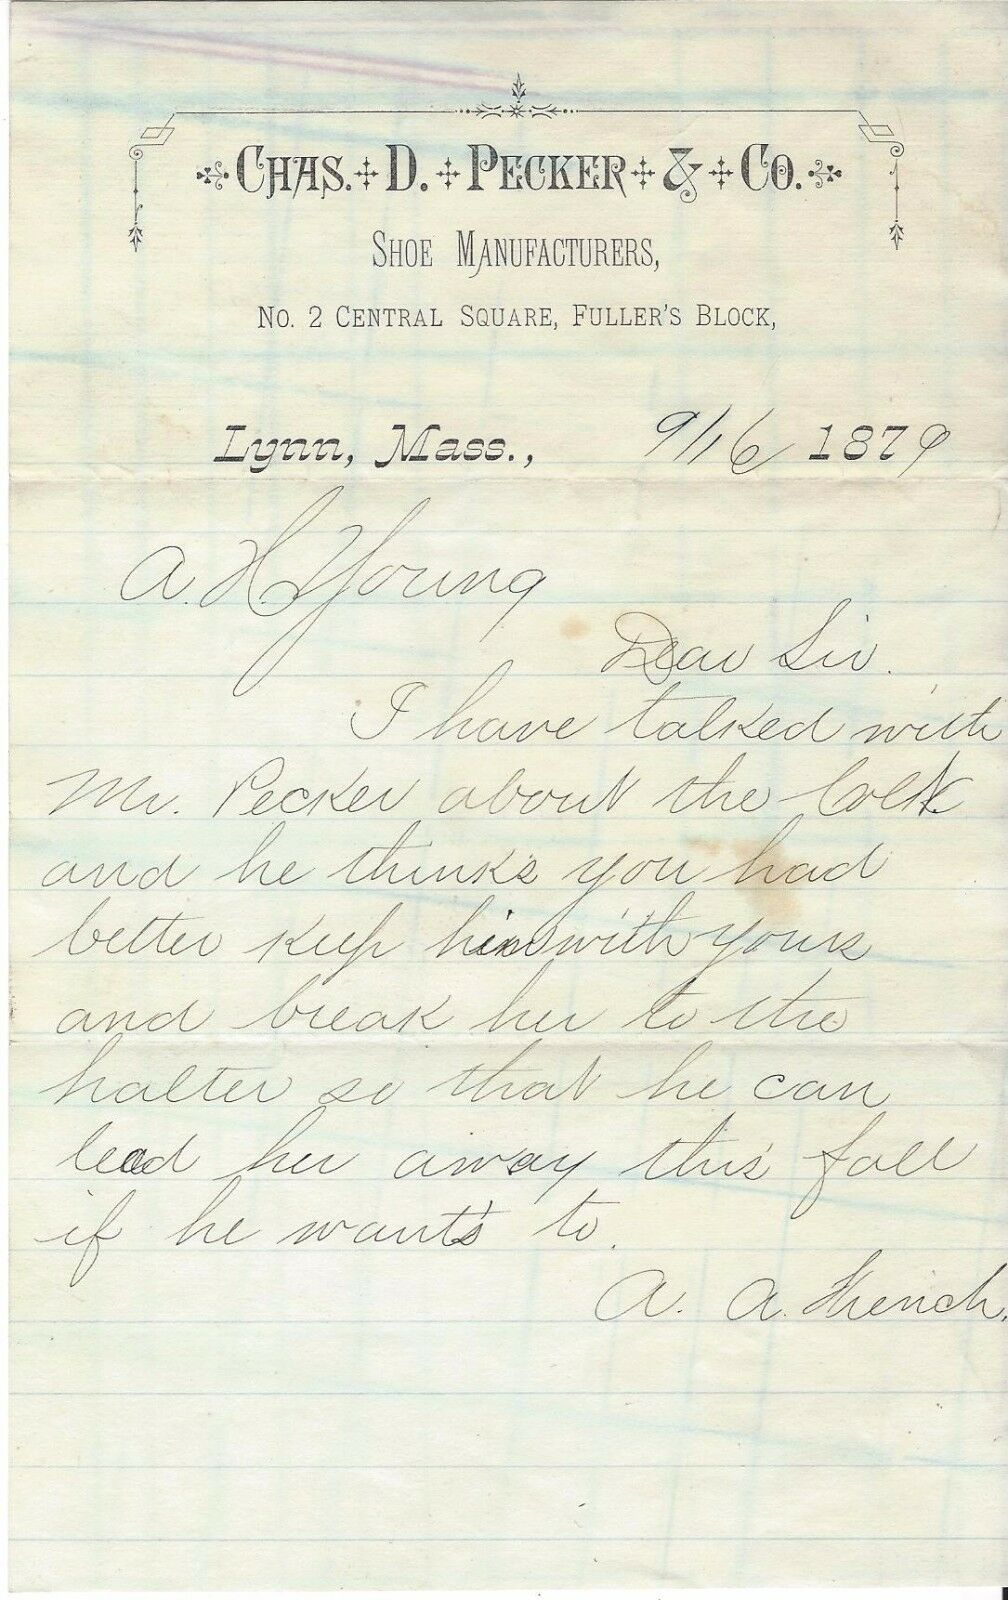 Chas. D. Pecker & Co.
Shoe Manufacturers,
No. 2 Central Square, Fuller's Block,
Lynn, Mass., 9/16 1879
A. H. Young
Dear Sir.
I have talked with
Mr. Pecker about the Colt
and he thinks you had
better keep him with yours
and break her to the
halter so that he can
lead her away this fall
if he want's to.
A. A. French.